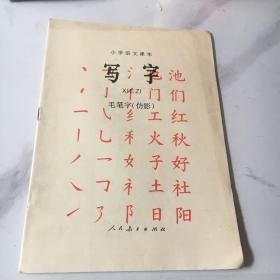 小学语文课本
写字
XIEZI
毛笔字(仿影)
氵 也 池
丿 丨 亻 门 们
一 纟 工 红
丨 禾 火 秋
丿 一 女 子 好
一 礻 土 社
阝 日 阳
人民教育出版社